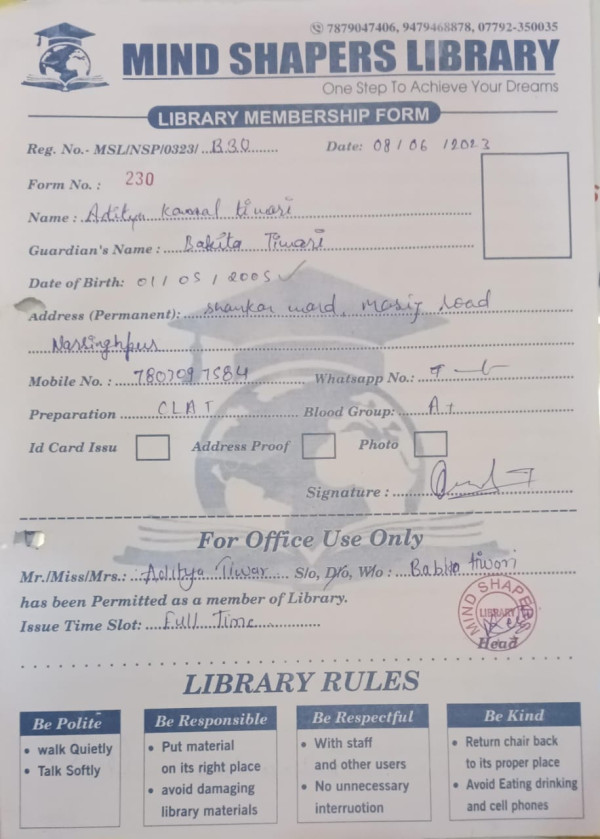 7879047406, 9479468878, 07792-350035
MIND SHAPERS LIBRARY
One Step To Achieve Your Dreams
LIBRARY MEMBERSHIP FORM
Reg. No.- MSL/NSP/0323/ B30 Date: 08/06/2023
Form No. : 230
Name : Aditya Kamal tiwari
Guardian's Name : Babita Tiwari
Date of Birth: 01/05/2005
Address (Permanent): shankar ward, road
Narsinghpur
Mobile No. : Whatsapp No.:
Preparation CLAT Blood Group: A+
Id Card Issu Address Proof Photo
Signature :
For Office Use Only
Mr./Miss/Mrs.: Aditya Tiwar S/o, D/o, W/o : Babita tiwari
has been Permitted as a member of Library.
Issue Time Slot: Full Time
MIND SHAPERS
LIBRARY
Head
LIBRARY RULES
Be Polite
• walk Quietly
• Talk Softly
Be Responsible
• Put material
on its right place
• avoid damaging
library materials
Be Respectful
• With staff
and other users
• No unnecessary
interruotion
Be Kind
• Return chair back
to its proper place
• Avoid Eating drinking
and cell phones